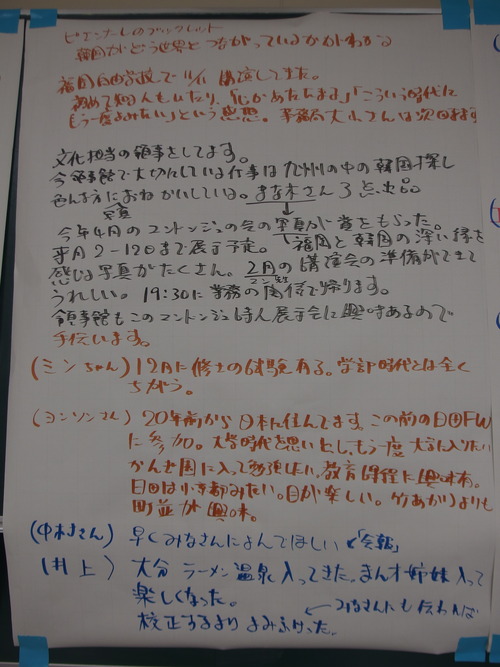 ビエンナーレのブックレット
韓国がどう世界とつながっているかがわかる
福岡自由学校で11/11 講演してきた。
初めて知る人もいたり、「心があたたまる」「こういう時代に
もう一度よみたい」という感想。事務局大小さんは次回
文化担当の領事をしてます。
今領事館で大切にしている仕事は九州の中の韓国探し
色んな方におねがいしている。まなネさん3点出品
写真
今年4月のユントンジュの会の写真が賞をもらった。
来月9-12日まで展示予定。福岡と韓国の深い縁を
感じる写真がたくさん。2月の講演会の準備ができて
うれしい。19:30に業務の関係で帰ります。
領事館もこのユントンジュ詩人展示会に興味あるので
手伝います。
(ミンちゃん) 12月に修士の試験有る。学部時代とは全く
ちがう。
(ヨンソンさん) 20年前から日本に住んでます。この前の日田FW
に参加。大学時代を思い出し、もう一度大学に入りたい
かんぜ園に入って勉強したい。教育課程に興味有。
日田は小京都みたい。目が楽しい。竹あかりよりも
町並が興味。
(中村さん) 早くみなさんによんでほしい 「会報」
(井上) 大分 ラーメン 温泉入ってきた。まん才姉妹入って
楽しくなった。
みなさんにも伝われば
校正するより よみふけった。